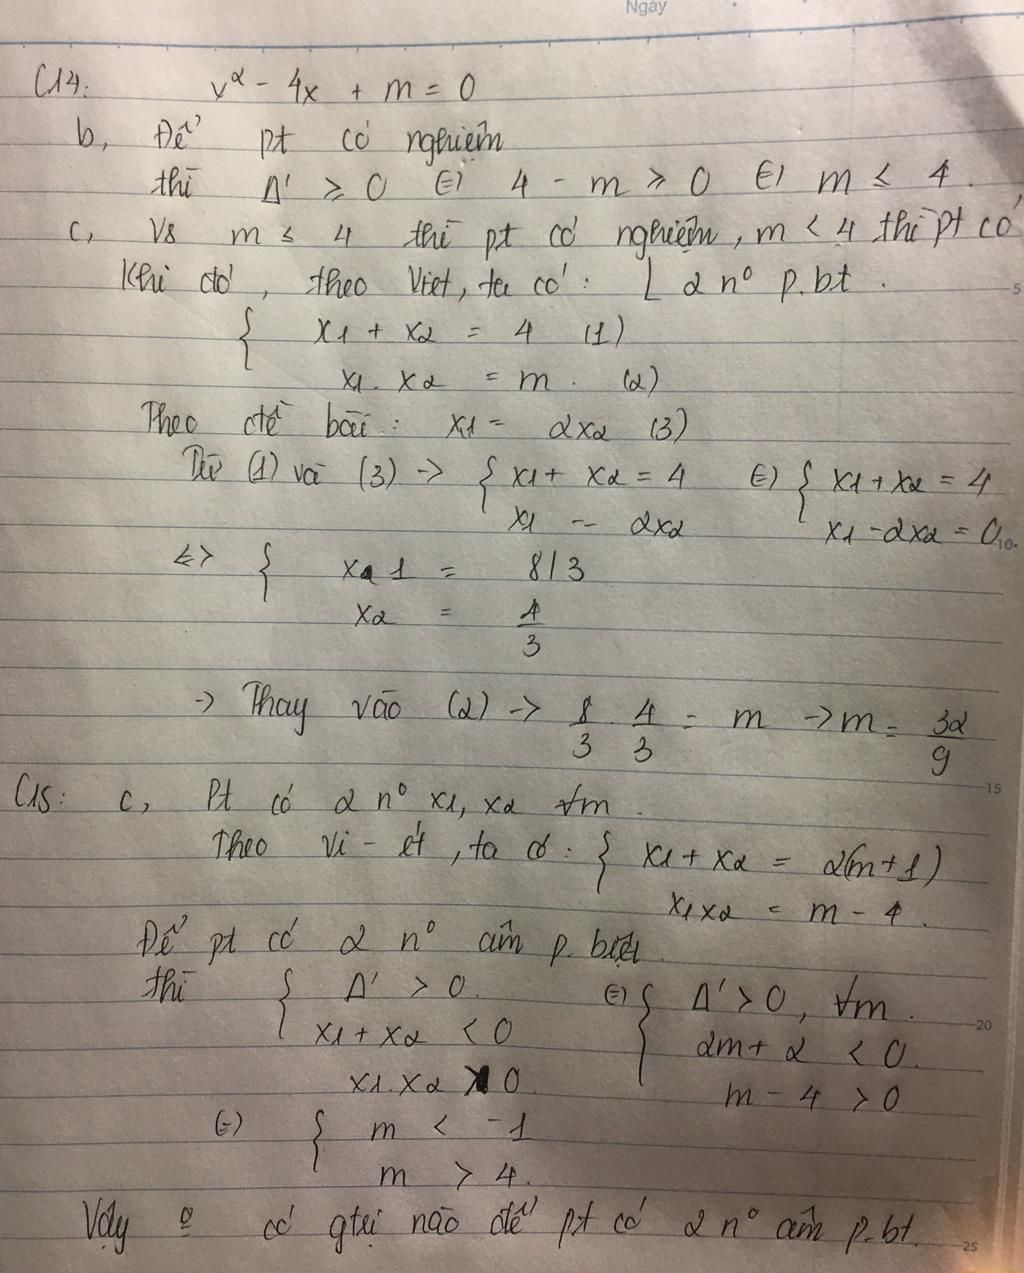 Ngày
C14: x² - 4x + m = 0
b, Để pt có nghiệm
thì Δ' ≥ 0 (=) 4 - m ≥ 0 (=) m ≤ 4.
c, Vs m ≤ 4 thì pt có nghiệm, m < 4 thì pt có
Khi đó, theo Viet, ta có: ⌊ 2 nº p.bt.
{ x1 + x2 = 4 (1)
x1. x2 = m. (2)
Theo đề bài: x1 = 2x2 (3)
Từ (1) và (3) -> { x1 + x2 = 4 (=) { x1 + x2 = 4
x1 = 2x2 x1 - 2x2 = 0
<=> { x1 = 8/3
x2 = 4/3
-> Thay vào (2) -> 8/3 . 4/3 = m -> m = 32/9
C15: c, Pt có 2 nº x1, x2 ∀m.
Theo Vi-ét, ta có: { x1 + x2 = 2(m+1)
x1x2 = m - 4.
Để pt có 2 nº âm p. biệt.
thì { Δ' > 0. (=) { Δ' > 0, ∀m.
x1 + x2 < 0 2m + 2 < 0.
x1.x2 > 0. m - 4 > 0
(=) { m < -1
m > 4.
Vậy º có gtrị nào để pt có 2 nº âm p.bt.
5
10
15
20
25